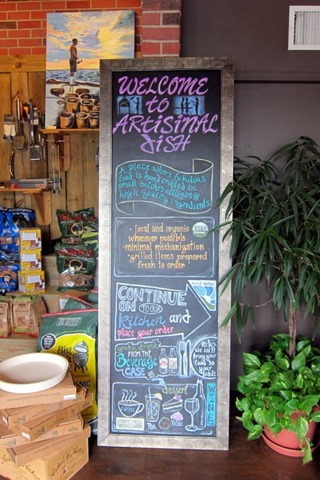 WELCOME
to
ARTISINAL
DISH
A place where fabulous
food is handcrafted in
small batches using
high quality ingredients
- local and organic
whenever possible
- minimal mechanization
- grilled items prepared
fresh to order
CONTINUE
ON TO OUR
Kitchen and
place your order
FROM THE
Beverage
CASE
Relax
and we'll
bring your
food to
your table
dessert
TEA
WINE
Big